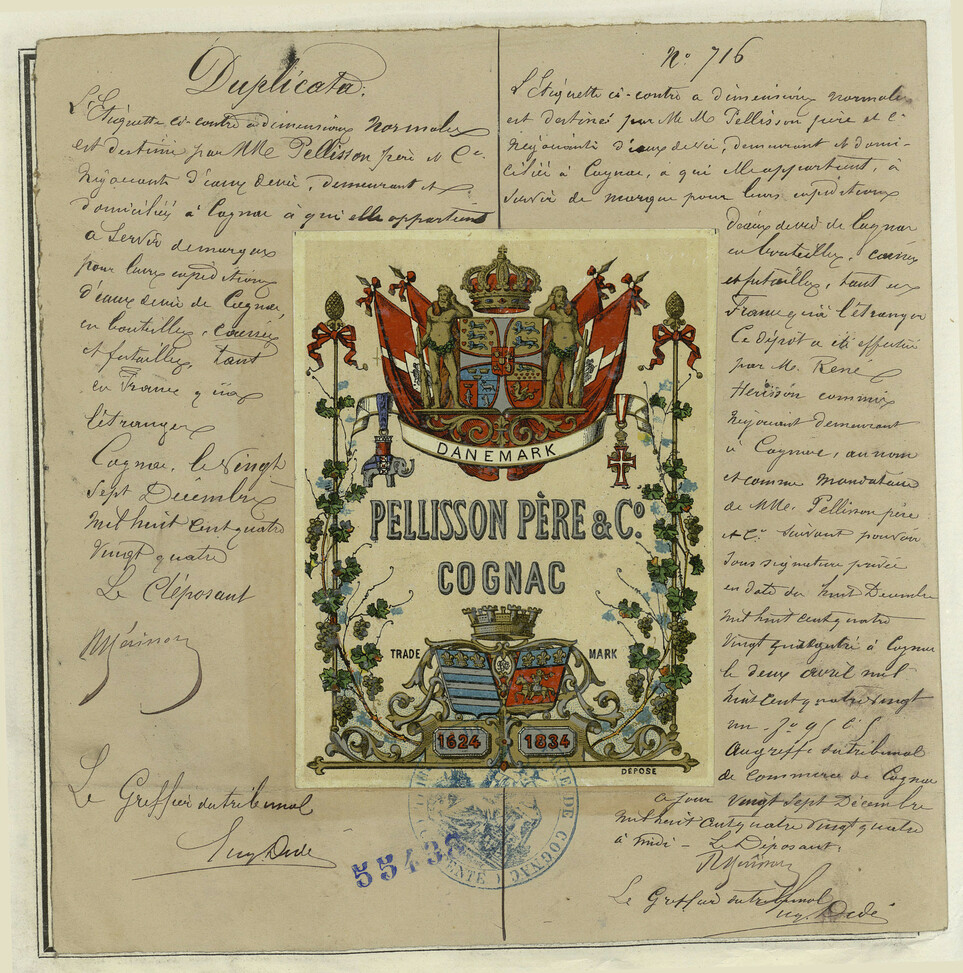 Duplicata.
L'Etiquette ci-contre à dimensions normales
est destinée par MM. Pellisson père et Cie.
négociants d'eaux de vie, demeurant et
domiciliés à Cognac à qui elle appartient
à servir de marques
pour leurs expéditions
d'eaux de vie de Cognac,
en bouteilles, caisses
et futailles, tant
en France qu'à
l'étranger
Cognac, le vingt
sept Décembre
mil huit cent quatre
vingt quatre
Le Déposant
RHérisson
Le Greffier du tribunal
Dedé
DANEMARK
PELLISSON PÈRE & Co.
COGNAC
TRADE MARK
1624 1834
DÉPOSÉ
DE COGNAC
No 716
L'Etiquette ci-contre a dimensions normales
est destinée par MM Pellisson père et Cie
négociants d'eaux de vie, demeurant et domi-
ciliés à Cognac, à qui elle appartient, à
servir de marque pour leurs expéditions
d'eaux de vie de Cognac
en bouteilles, caisses
et futailles, tant en
France qu'à l'étranger
Ce dépôt a été effectué
par M. René
Hérisson commis
négociant demeurant
à Cognac, au nom
et comme mandataire
de MM. Pellisson père
et Cie suivant pouvoir
sous signature privée
en date du huit Décembre
mil huit cent quatre
vingt à Cognac
le deux avril mil
huit cent quatre vingt
un
Au greffe du tribunal
de Commerce de Cognac
ce jour vingt sept Décembre
mil huit cent quatre vingt quatre
à midi - Le Déposant
RHérisson
Le Greffier du tribunal
Dedé